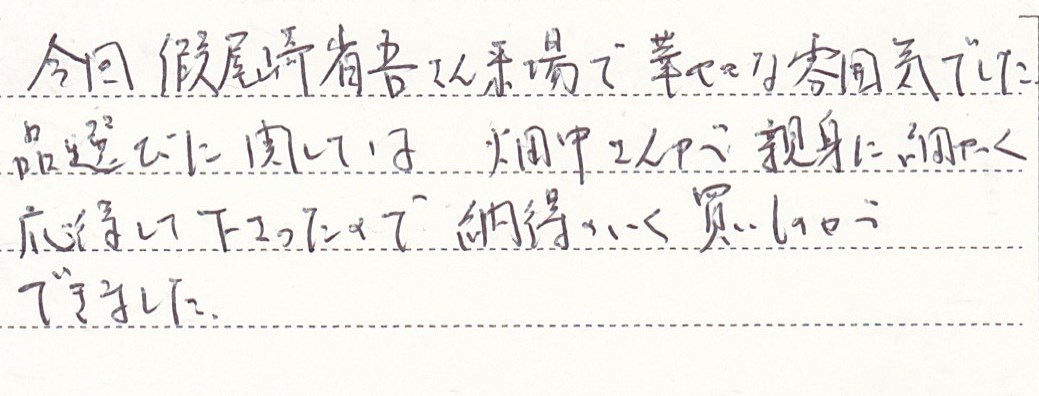 今回 假屋崎省吾さん来場で華やかな雰囲気でした
品選びに関しては 畑中さんが親身に細かく
応待して下さったので 納得のいく買いものが
できました。